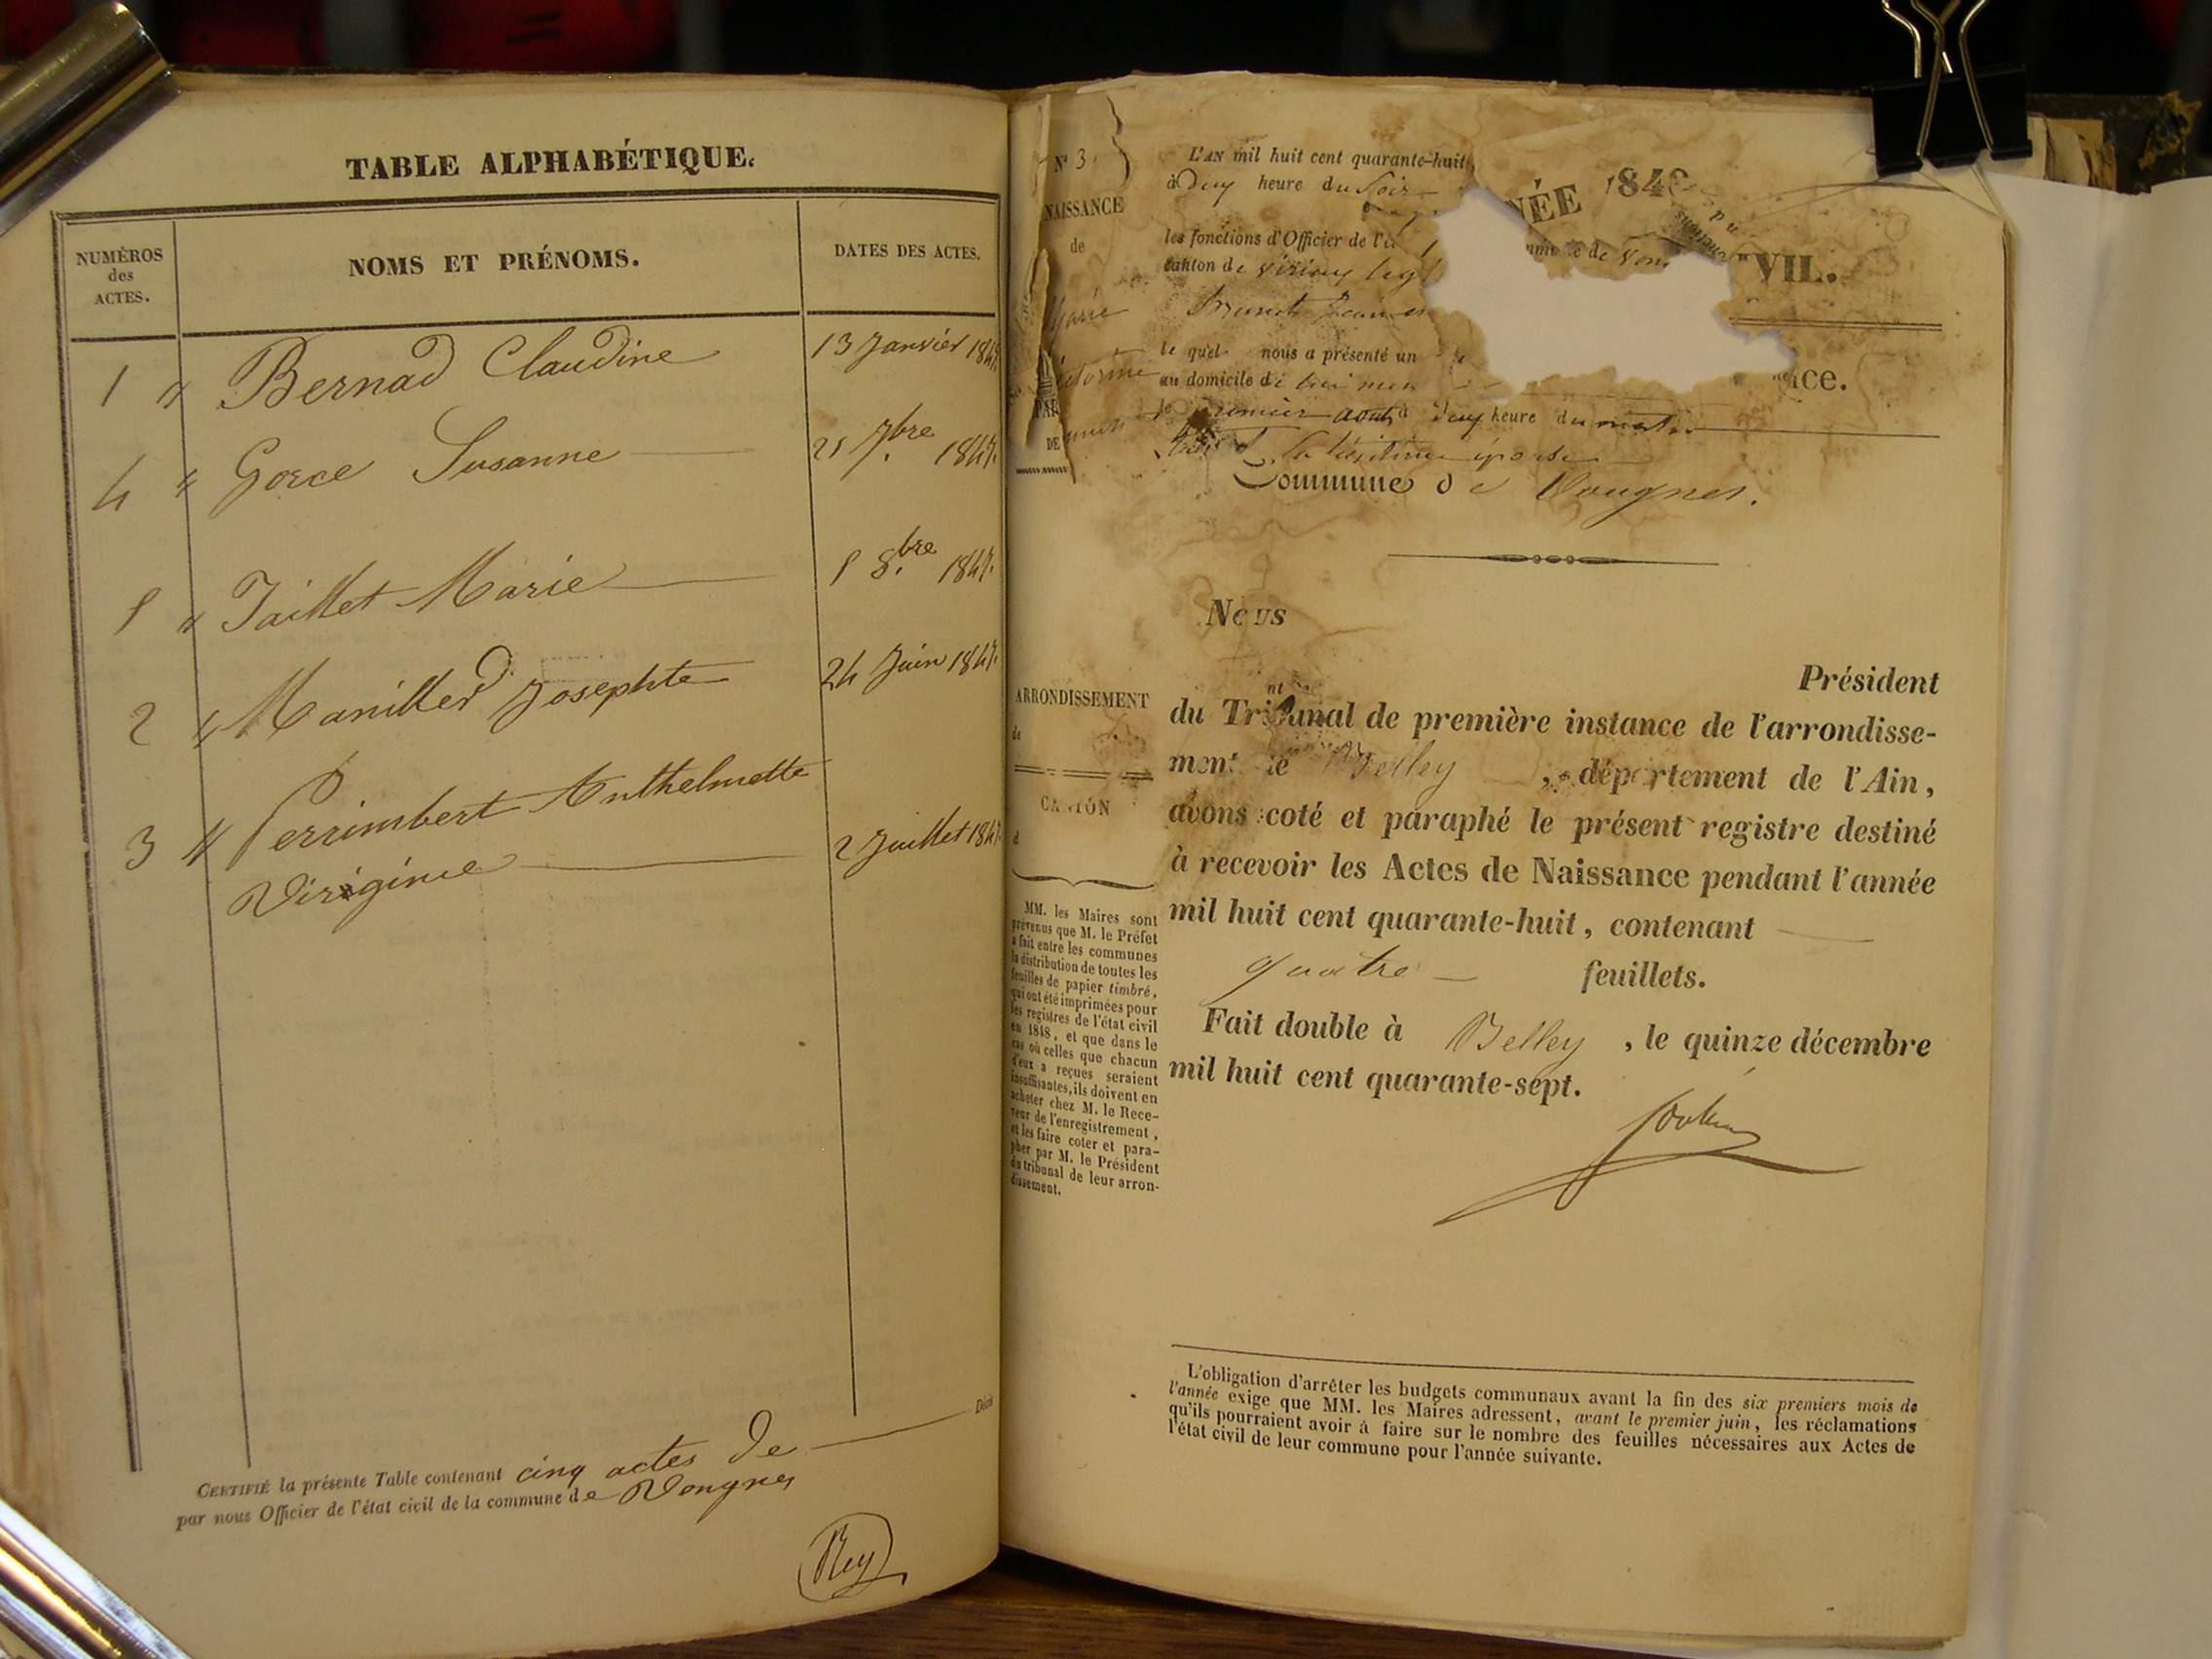 TABLE ALPHABÉTIQUE.
NUMÉROS
des
ACTES.
NOMS ET PRÉNOMS.
DATES DES ACTES.
1 " Bernad Claudine 13 Janvier 1847
4 " Gorce Susanne 25 7bre 1847.
5 " Jaillet Marie 5 8.bre 1847.
2 " Manilled Josephte 24 Juin 1847.
3 " Perrimbert Anthelmette
Virginie 2 Juillet 1847.
CERTIFIÉ la présente Table contenant cinq actes de
par nous Officier de l'état civil de la commune de Vongnes
Rey
N° 3.
NAISSANCE
de
Marie
L'AN mil huit cent quarante-huit
à Deux heure du Soir
les fonctions d'Officier de l'é
canton de virieux leg
le quel nous a présenté un
au domicile de
premier août à deux heure du matin
la légitime épouse
NÉE 184
VIL.
ce.
PAR
DE
Commune de Vongnes.
Nous
Président
du Tribunal de première instance de l'arrondisse-
ment de Belley , département de l'Ain,
avons coté et paraphé le présent registre destiné
à recevoir les Actes de Naissance pendant l'année
mil huit cent quarante-huit, contenant
quatre feuillets.
Fait double à Belley , le quinze décembre
mil huit cent quarante-sept.
ARRONDISSEMENT
de
CANTON
d
MM. les Maires sont
prévenus que M. le Préfet
a fait entre les communes
la distribution de toutes les
feuilles de papier timbré,
qui ont été imprimées pour
les registres de l'état civil
en 1848, et que dans le
cas où celles que chacun
d'eux a reçues seraient
insuffisantes, ils doivent en
acheter chez M. le Rece-
veur de l'enregistrement,
et les faire coter et para-
pher par M. le Président
du tribunal de leur arron-
dissement.
L'obligation d'arrêter les budgets communaux avant la fin des six premiers mois de
l'année exige que MM. les Maires adressent, avant le premier juin, les réclamations
qu'ils pourraient avoir à faire sur le nombre des feuilles nécessaires aux Actes de
l'état civil de leur commune pour l'année suivante.